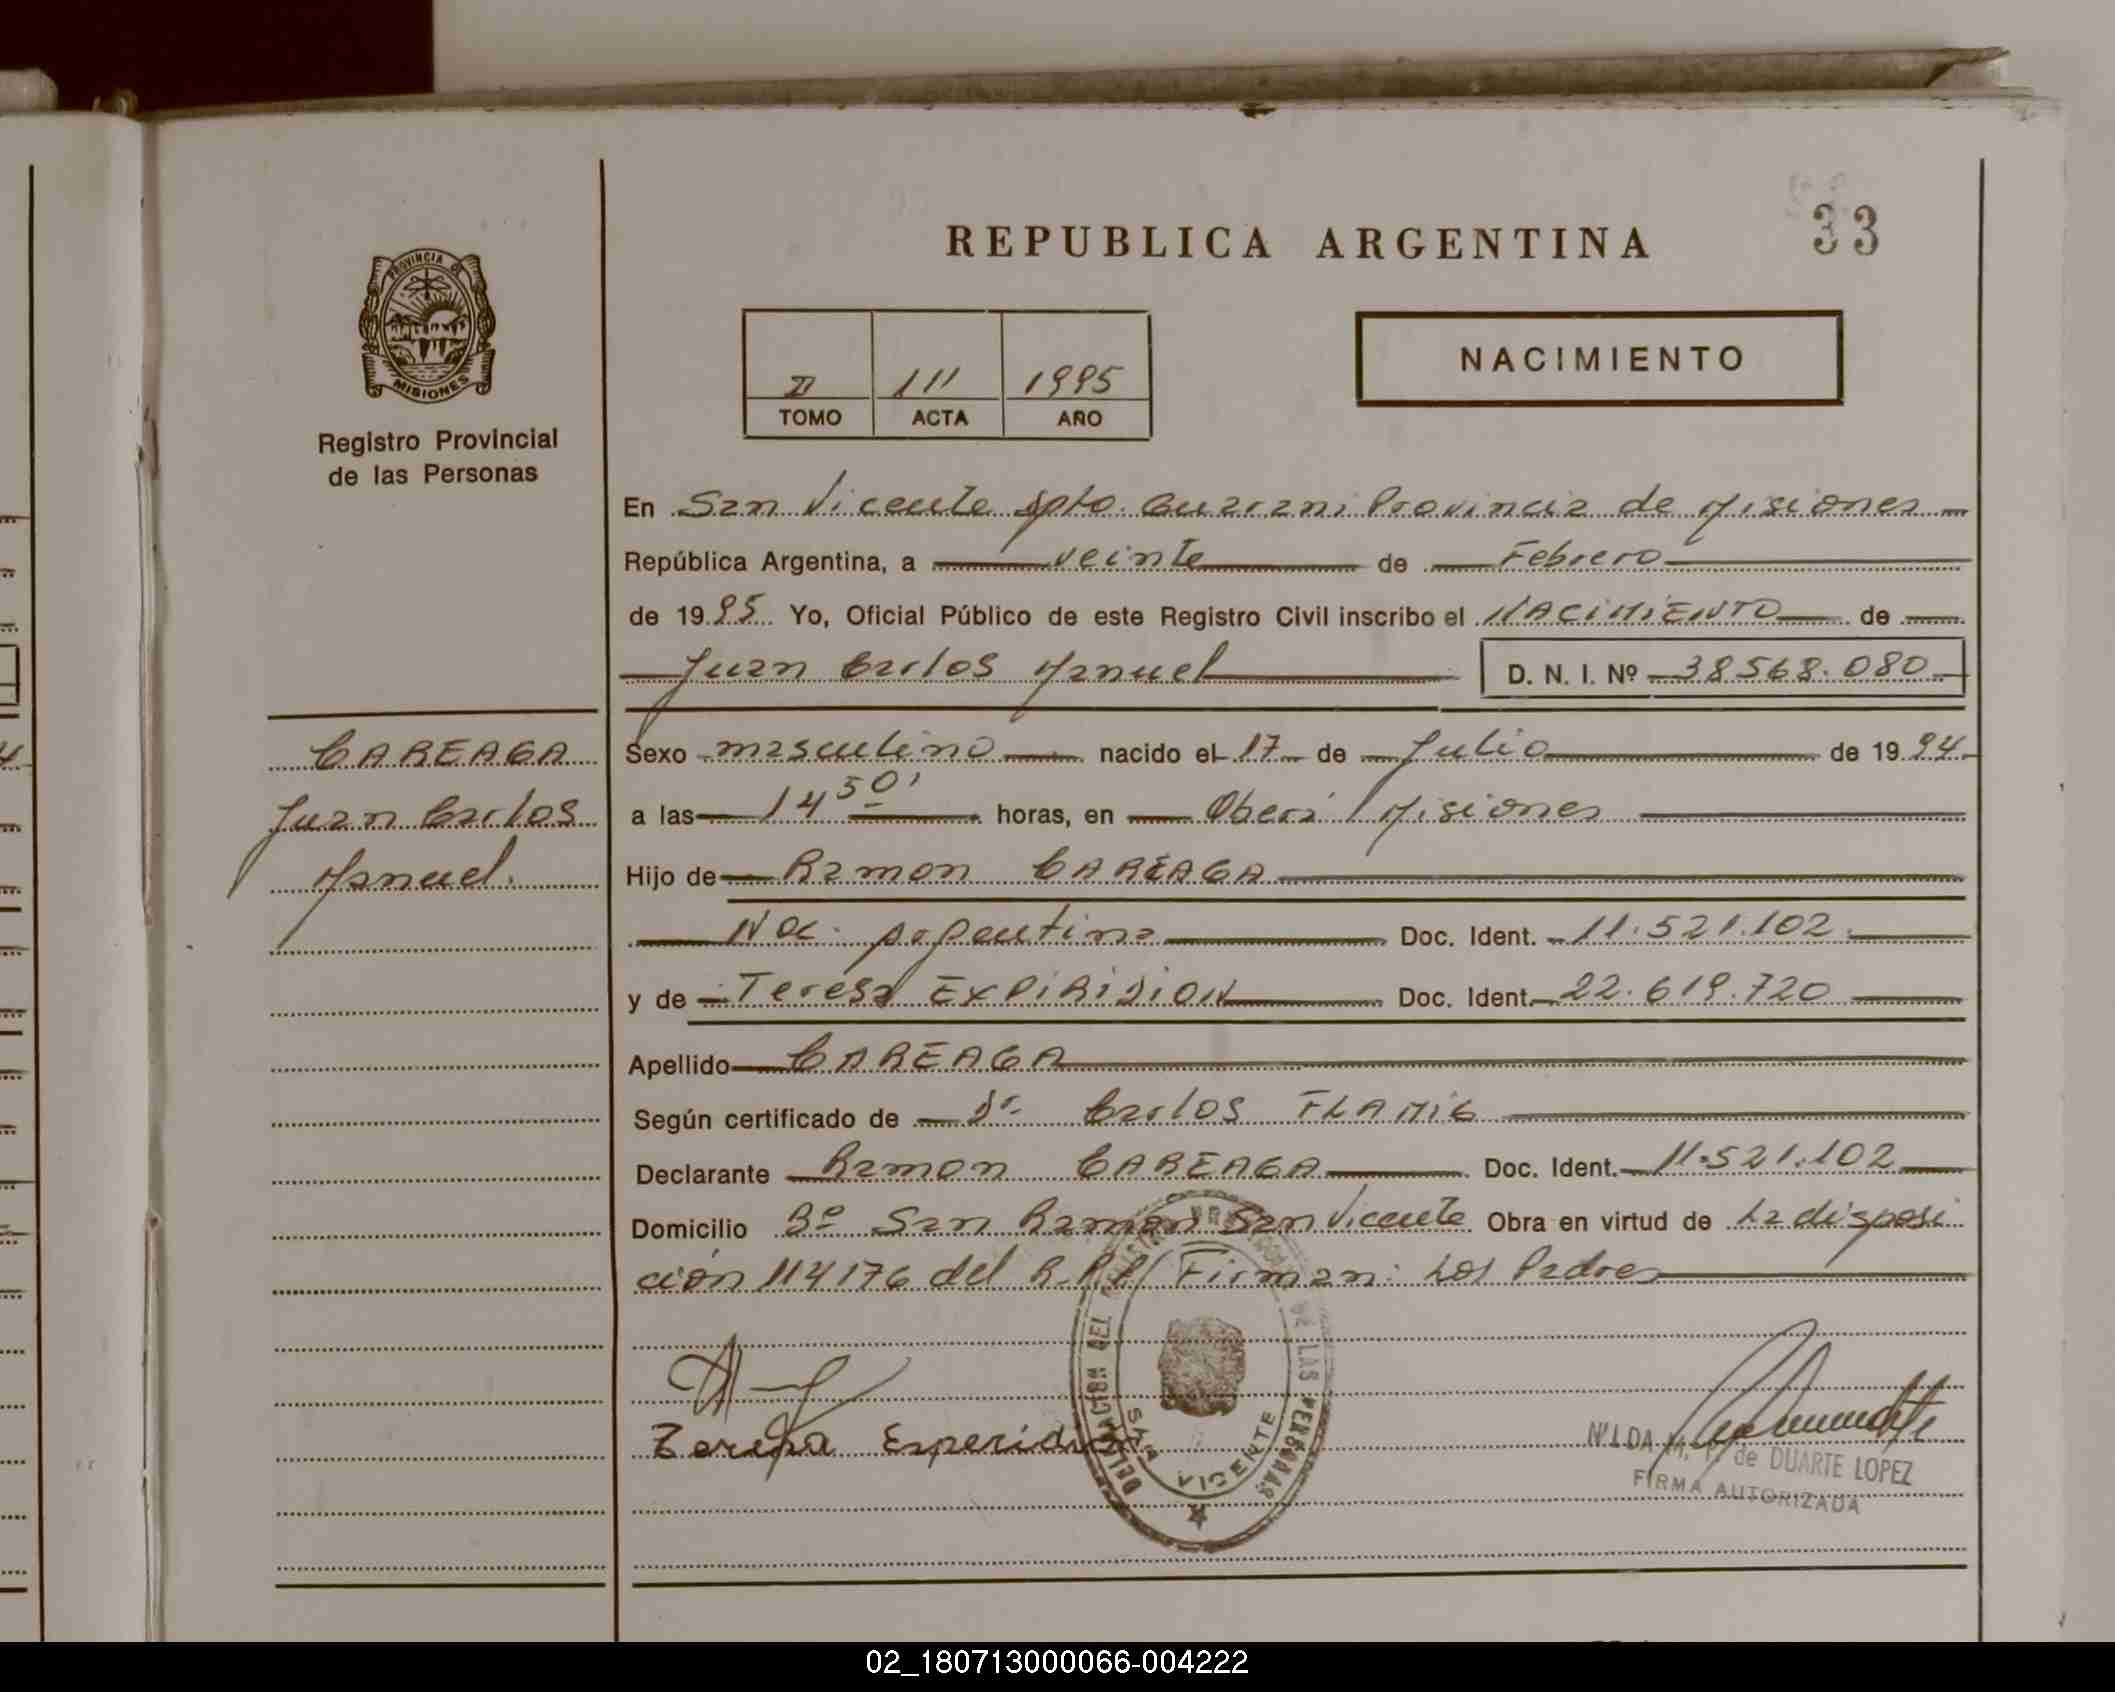 PROVINCIA DE
MISIONES
Registro Provincial
de las Personas
CAREAGA
Juan Carlos
Manuel.
REPUBLICA ARGENTINA
33
II 111 1995
TOMO ACTA AÑO
NACIMIENTO
En San Vicente Dpto. Guarani Provincia de Misiones
República Argentina, a veinte de Febrero
de 1995 Yo, Oficial Público de este Registro Civil inscribo el NACIMIENTO de
Juan Carlos Manuel D. N. I. Nº 38568.080
Sexo masculino nacido el 17 de Julio de 1994
a las 14 50' horas, en Oberá Misiones
Hijo de Ramon CAREAGA
Nac. Argentina Doc. Ident. 11.521.102.
y de Teresa EXPIRIDION Doc. Ident. 22.619.720
Apellido CAREAGA
Según certificado de Dr. Carlos FLAMIG
Declarante Ramon CAREAGA Doc. Ident. 11.521.102
Domicilio Bº San Ramon San Vicente Obra en virtud de La disposi
ción 114176 del R.P.P/ Firman: Los Padres
Teresa
DELEGACION DEL DE LAS PERSONAS
SAN VICENTE
NILDA de DUARTE LOPEZ
FIRMA AUTORIZADA
02_180713000066-004222